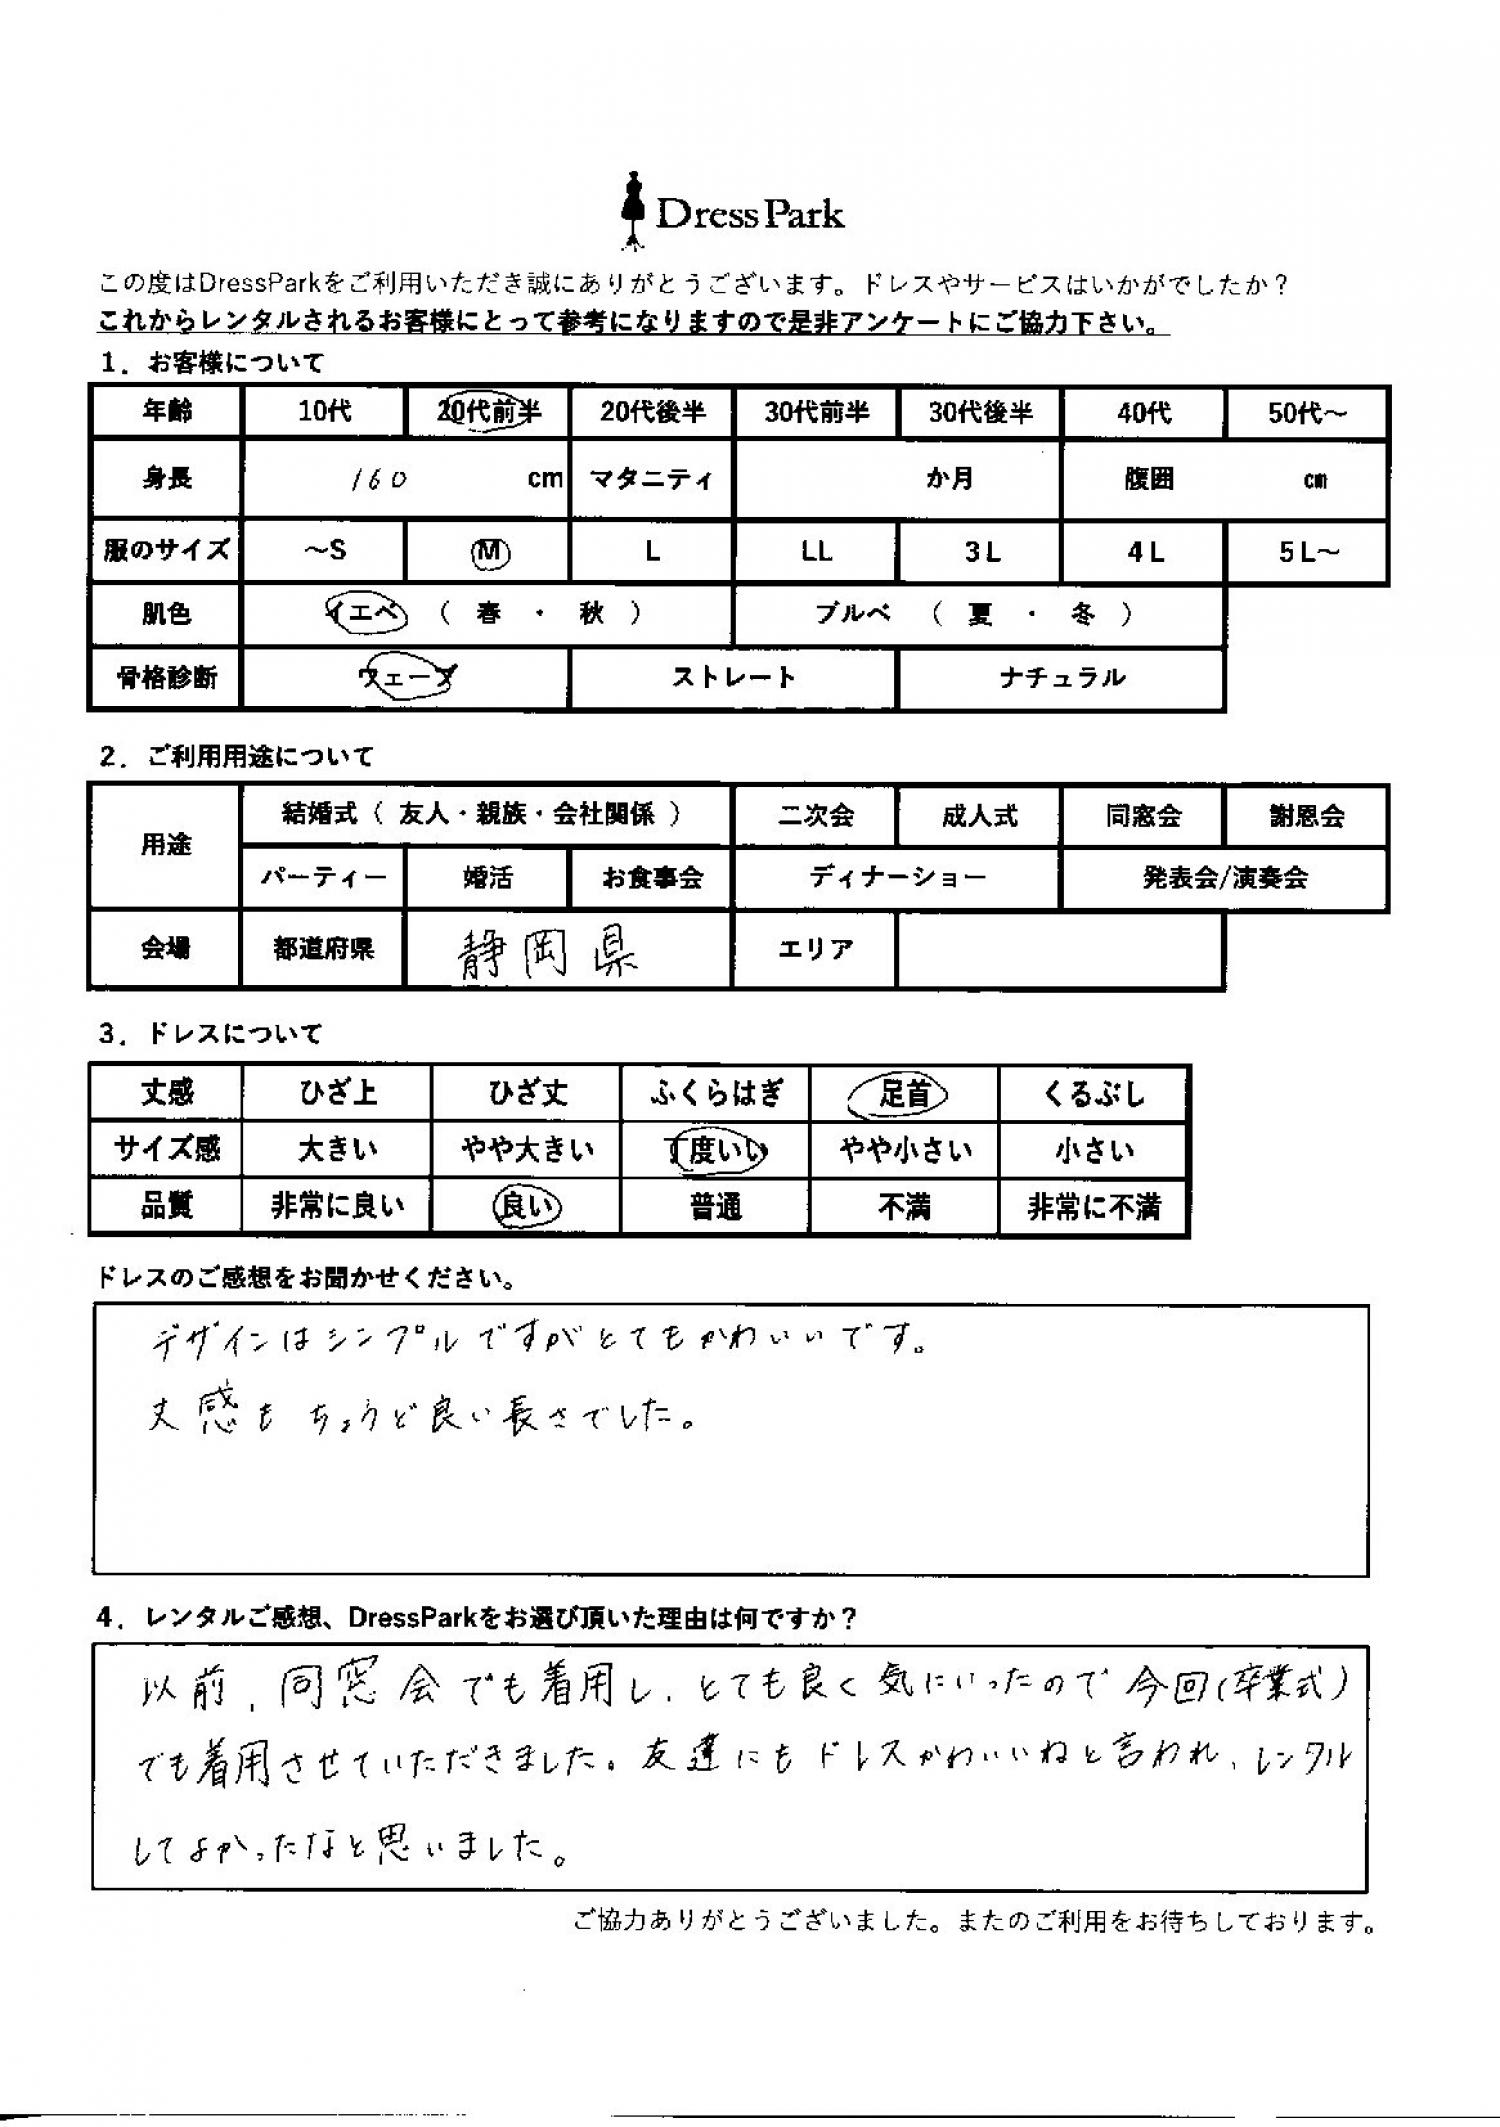 DressPark
この度はDressParkをご利用いただき誠にありがとうございます。ドレスやサービスはいかがでしたか？
これからレンタルされるお客様にとって参考になりますので是非アンケートにご協力下さい。
1．お客様について
年齢 10代 20代前半 20代後半 30代前半 30代後半 40代 50代～
身長 160 cm マタニティ か月 腹囲 cm
服のサイズ ～S M L LL 3L 4L 5L～
肌色 イエベ （ 春 ・ 秋 ） ブルベ （ 夏 ・ 冬 ）
骨格診断 ウェーブ ストレート ナチュラル
2．ご利用用途について
用途 結婚式（ 友人・親族・会社関係 ） 二次会 成人式 同窓会 謝恩会
パーティー 婚活 お食事会 ディナーショー 発表会/演奏会
会場 都道府県 静岡県 エリア
3．ドレスについて
丈感 ひざ上 ひざ丈 ふくらはぎ 足首 くるぶし
サイズ感 大きい やや大きい 丁度いい やや小さい 小さい
品質 非常に良い 良い 普通 不満 非常に不満
ドレスのご感想をお聞かせください。
デザインはシンプルですがとてもかわいいです。
丈感もちょうど良い長さでした。
4．レンタルご感想、DressParkをお選び頂いた理由は何ですか？
以前、同窓会でも着用し、とても良く気にいったので今回（卒業式）
でも着用させていただきました。友達にもドレスかわいいねと言われ、レンタル
してよかったなと思いました。
ご協力ありがとうございました。またのご利用をお待ちしております。